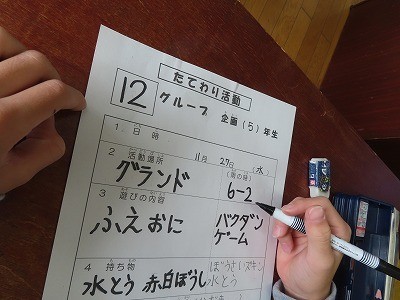 たてわり活動
12 グループ 企画(5)年生
1. 日時
11月 27日(水)
2 活動場所
グランド
(雨の時)
6-2
3 遊びの内容
ふえおに
バクダン
ゲーム
4 持ち物
水とう 赤白ぼうし
ぼうさいズキン
水とう